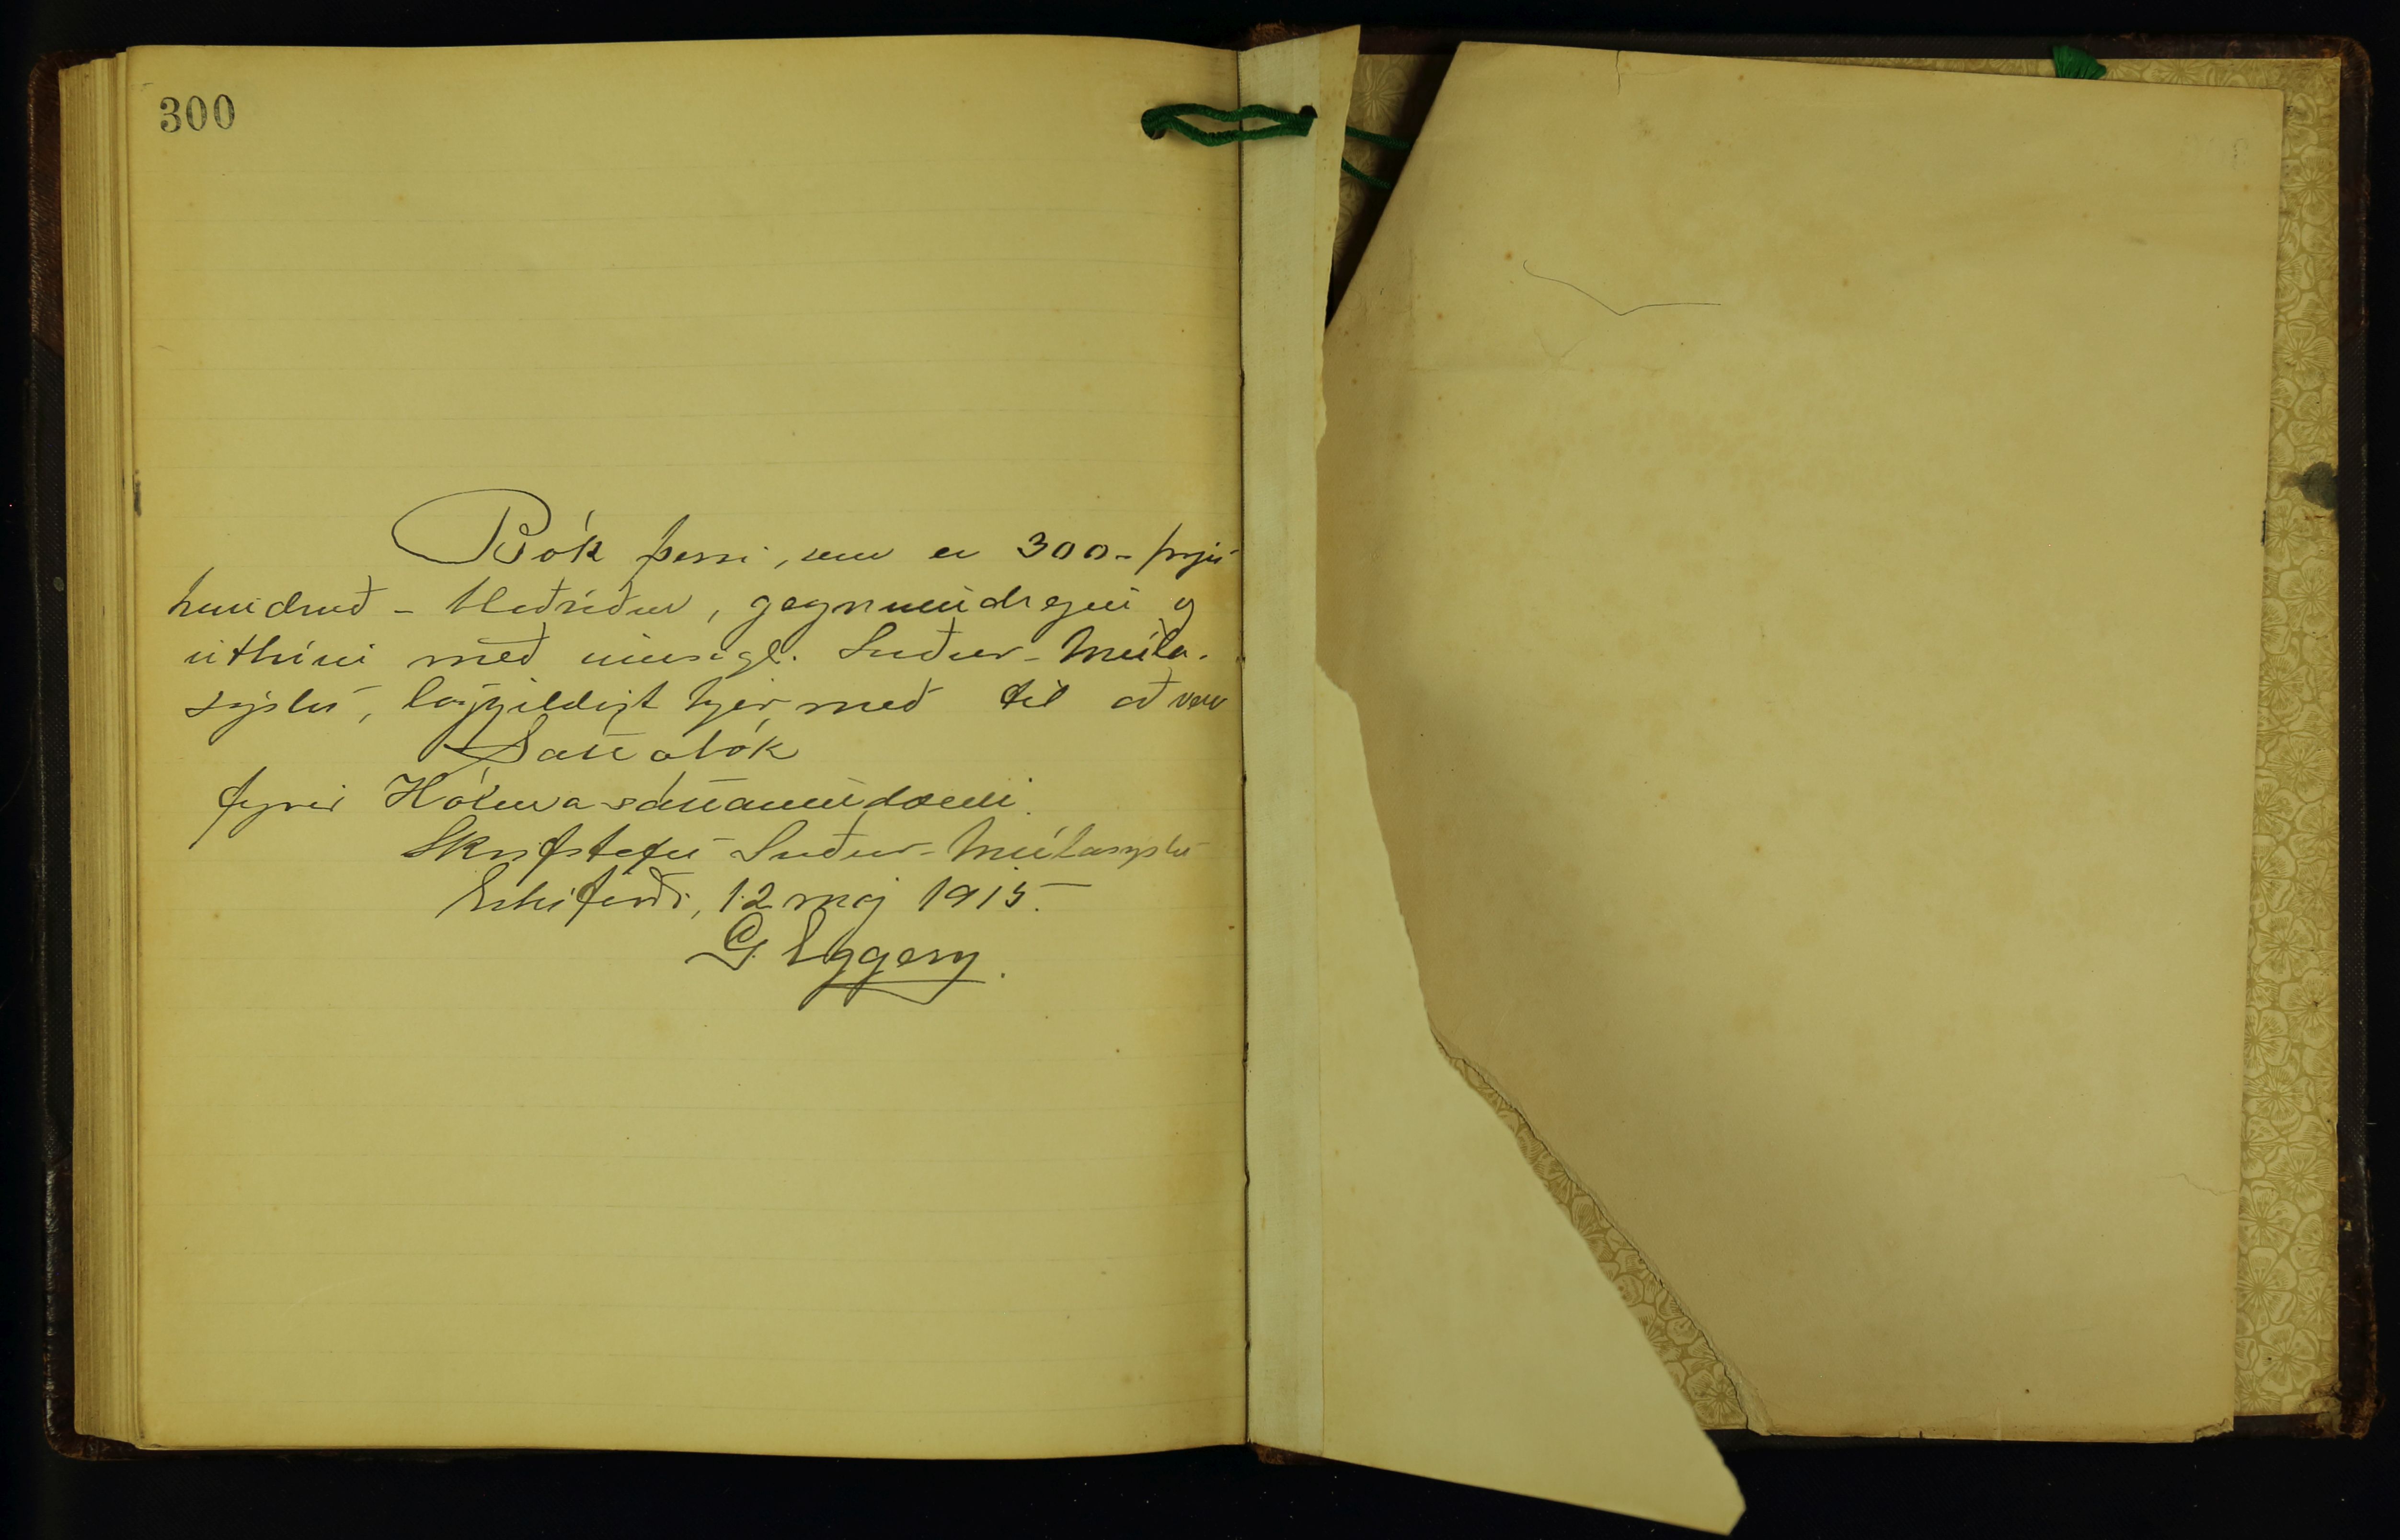 300
Bók þessi, sem er 300 - þrjú
hundruð - blaðsíður, gegnumdregin og
með innsigli Suður-Múla-
sýslu, löggildist hjer með til að vera
Sáttabók
fyrir Hólma-sáttaumdæmi.
Skrifstofu Suður-Múlasýslu
Eskifirði, 12 maj 1915.
G. Eggerz.